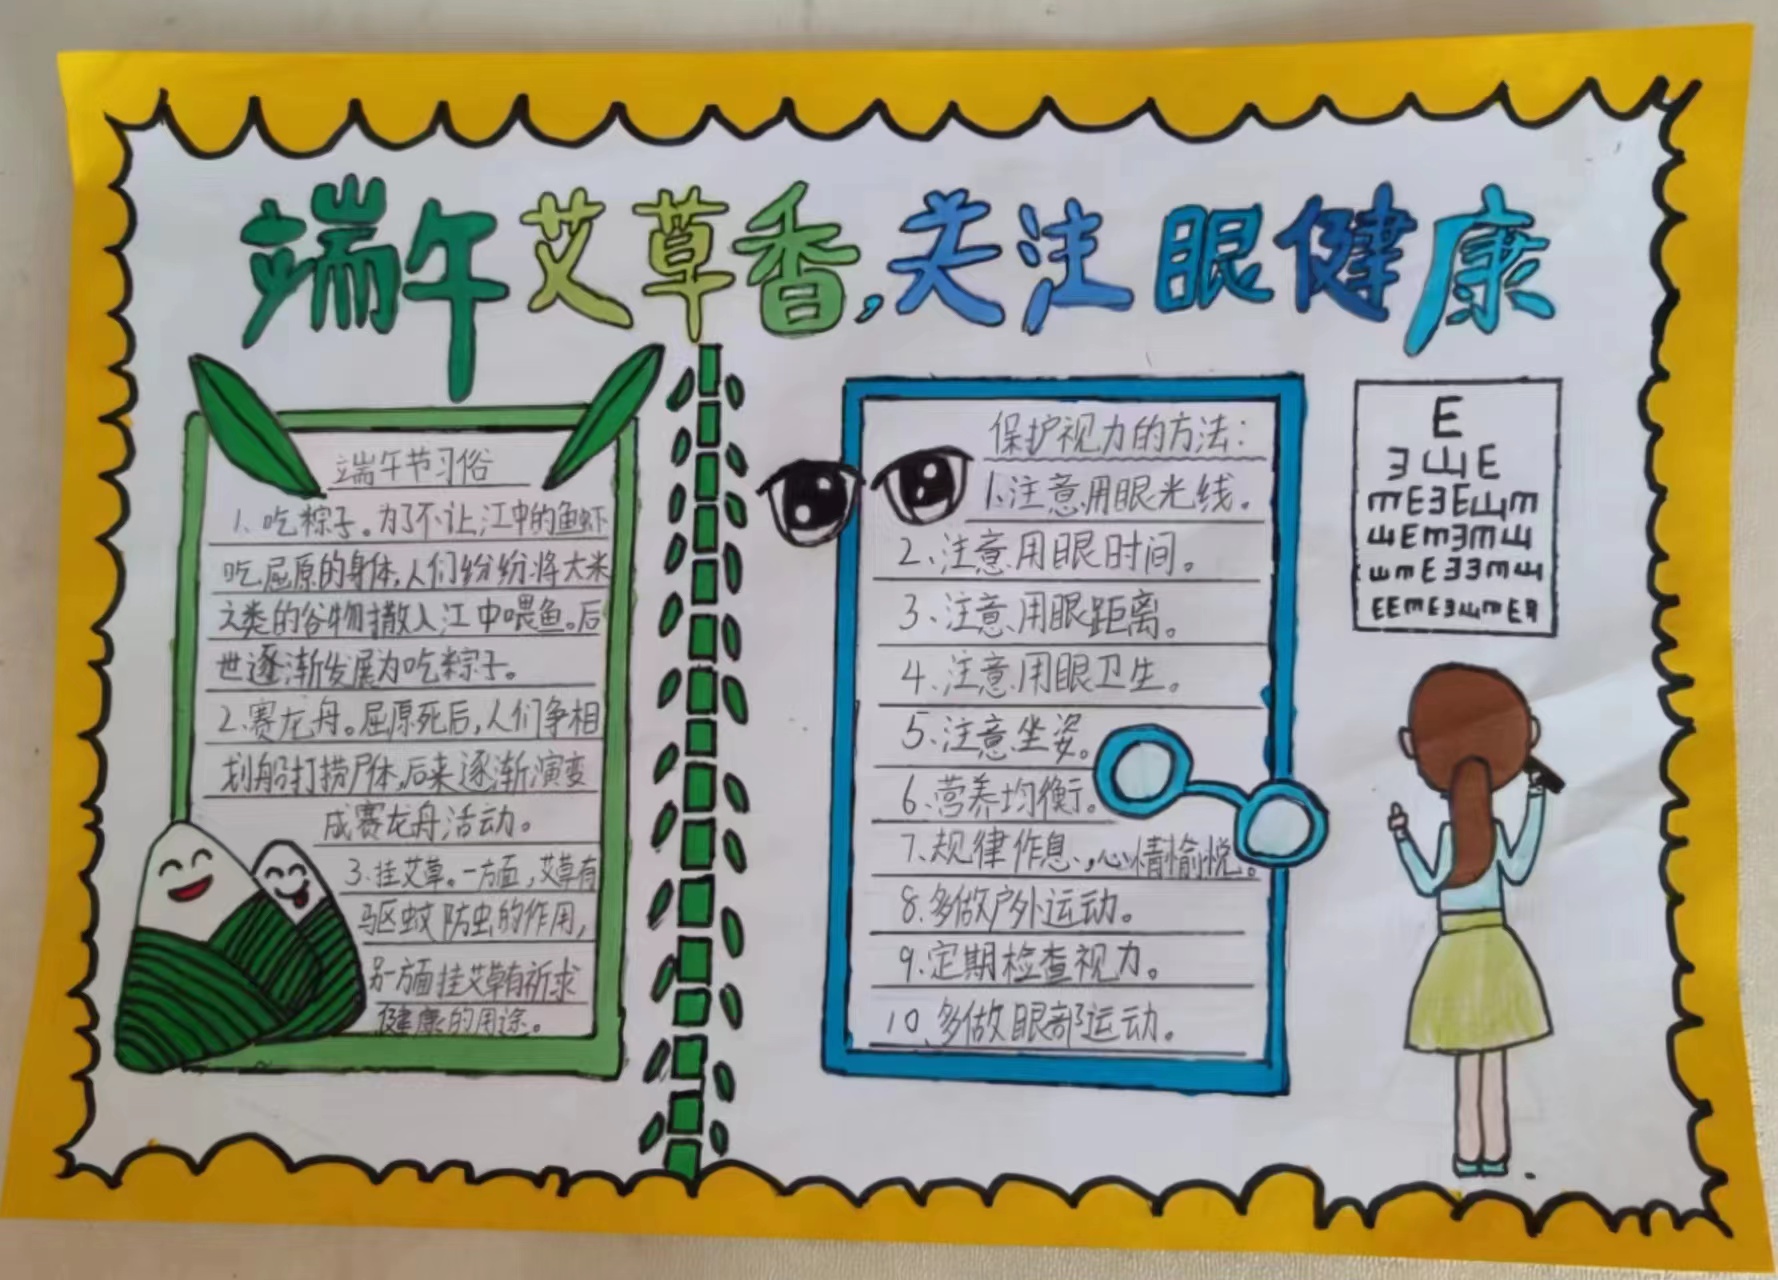 端午艾草香,关注眼健康
端午节习俗
1、吃粽子。为了不让江中的鱼虾
吃屈原的身体,人们纷纷将大米
之类的谷物撒入江中喂鱼。后
世逐渐发展为吃粽子。
2、赛龙舟。屈原死后,人们争相
划船打捞尸体,后来逐渐演变
成赛龙舟活动。
3、挂艾草。一方面,艾草有
驱蚊防虫的作用,
另一方面挂艾草有祈求
健康的用途。
保护视力的方法:
1、注意用眼光线。
2、注意用眼时间。
3、注意用眼距离。
4、注意用眼卫生。
5、注意坐姿。
6、营养均衡。
7、规律作息,心情愉悦。
8、多做户外运动。
9、定期检查视力。
10、多做眼部运动。
E